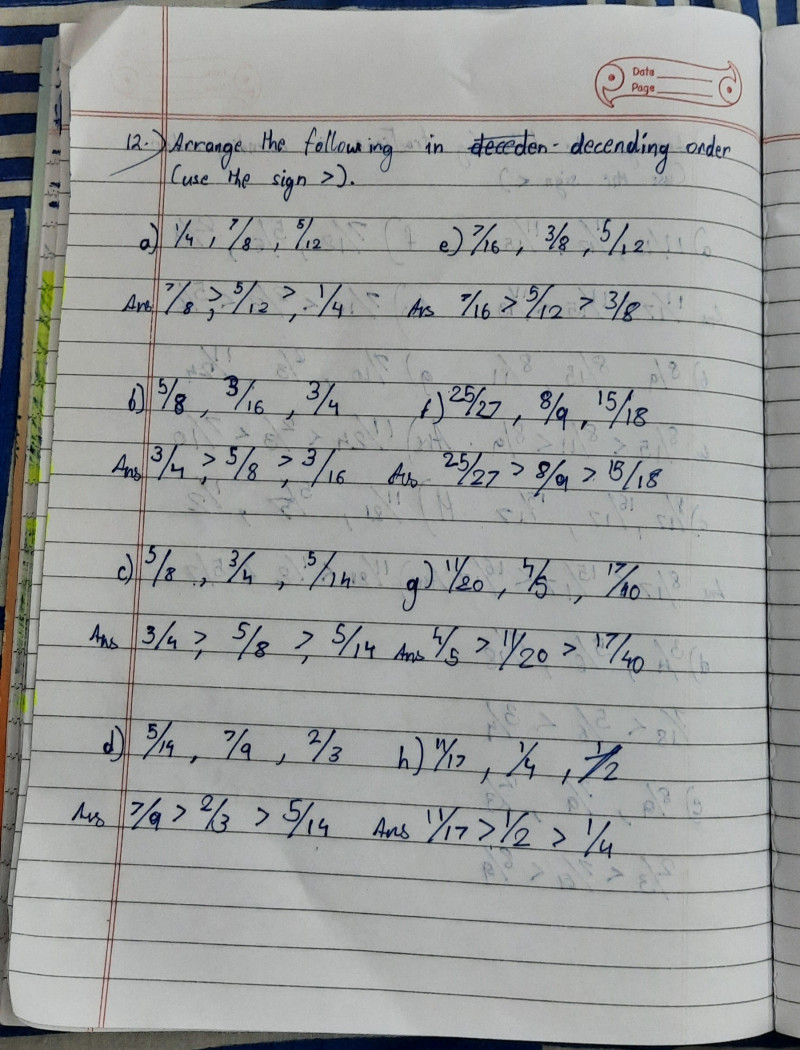 Date
Page
12.) Arrange the following in decending order
(use the sign >).
a) 1/4 , 7/8 , 5/12 e) 7/16 , 3/8 , 5/12
Ans 7/8 > 5/12 > 1/4 Ans 7/16 > 5/12 > 3/8
b) 5/8 , 3/16 , 3/4 f) 25/27 , 8/9 , 15/18
Ans 3/4 > 5/8 > 3/16 Ans 25/27 > 8/9 > 15/18
c) 5/8 , 3/4 , 5/14 g) 11/20 , 4/5 , 17/40
Ans 3/4 > 5/8 > 5/14 Ans 4/5 > 11/20 > 17/40
d) 5/14 , 7/9 , 2/3 h) 11/17 , 1/4 , 1/2
Ans 7/9 > 2/3 > 5/14 Ans 11/17 > 1/2 > 1/4